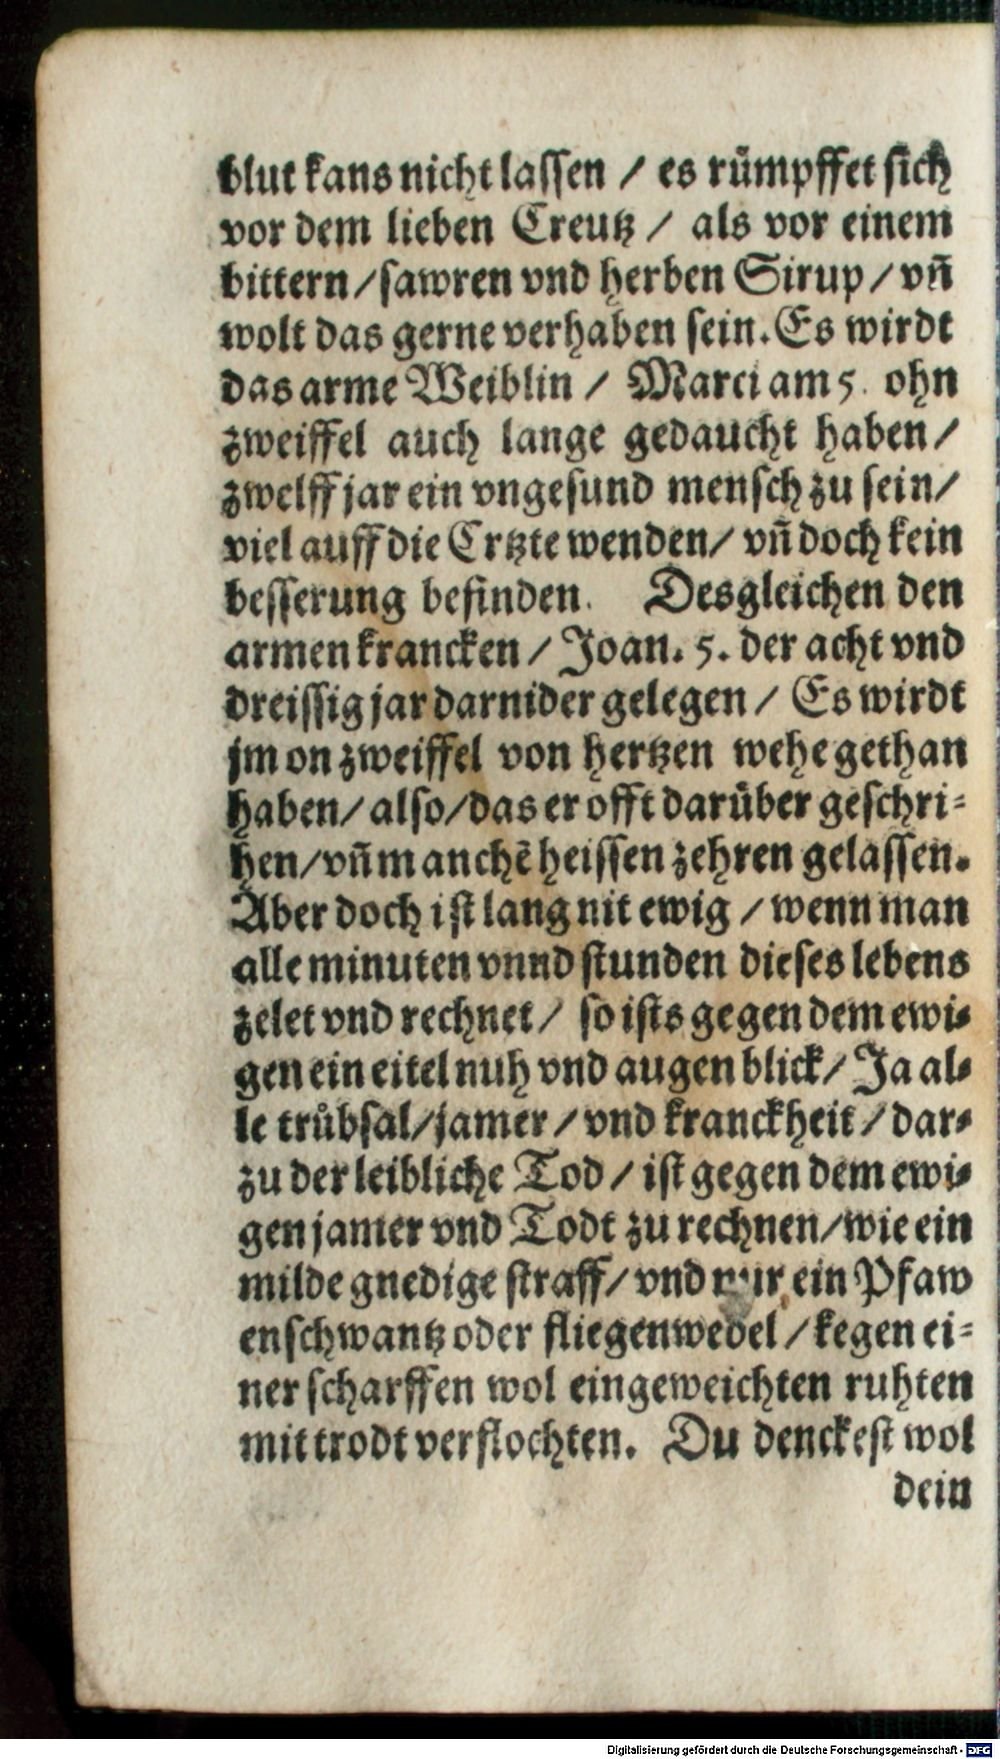 blut kans nicht lassen / es rümpffet sich
vor dem lieben Creutz / als vor einem
bittern / sawren vnd herben Sirup / vñ
wolt das gerne verhaben sein. Es wirdt
das arme Weiblin / Marci am 5. ohn
zweiffel auch lange gedaucht haben /
zwelff jar ein vngesund mensch zu sein /
viel auff die Ertzte wenden / vñ doch kein
besserung befinden. Desgleichen den
armen krancken / Joan. 5. der acht vnd
dreissig jar darnider gelegen / Es wirdt
jm on zweiffel von hertzen wehe gethan
haben / also / das er offt darüber geschri-
hen / vñ manchẽ heissen zehren gelassen.
Aber doch ist lang nit ewig / wenn man
alle minuten vnnd stunden dieses lebens
zelet vnd rechnet / so ists gegen dem ewi-
gen ein eitel nuh vnd augenblick / Ja al-
le trůbsal / jamer / vnd kranckheit / dar-
zu der leibliche Tod / ist gegen dem ewi-
gen jamer vnd Todt zu rechnen / wie ein
milde gnedige straff / vnd nur ein Pfaw
enschwantz oder fliegenwedel / kegen ei-
ner scharffen wol eingeweichten ruhten
mit trodt verflochten. Du denckest wol
dein
Digitalisierung gefördert durch die Deutsche Forschungsgemeinschaft - DFG